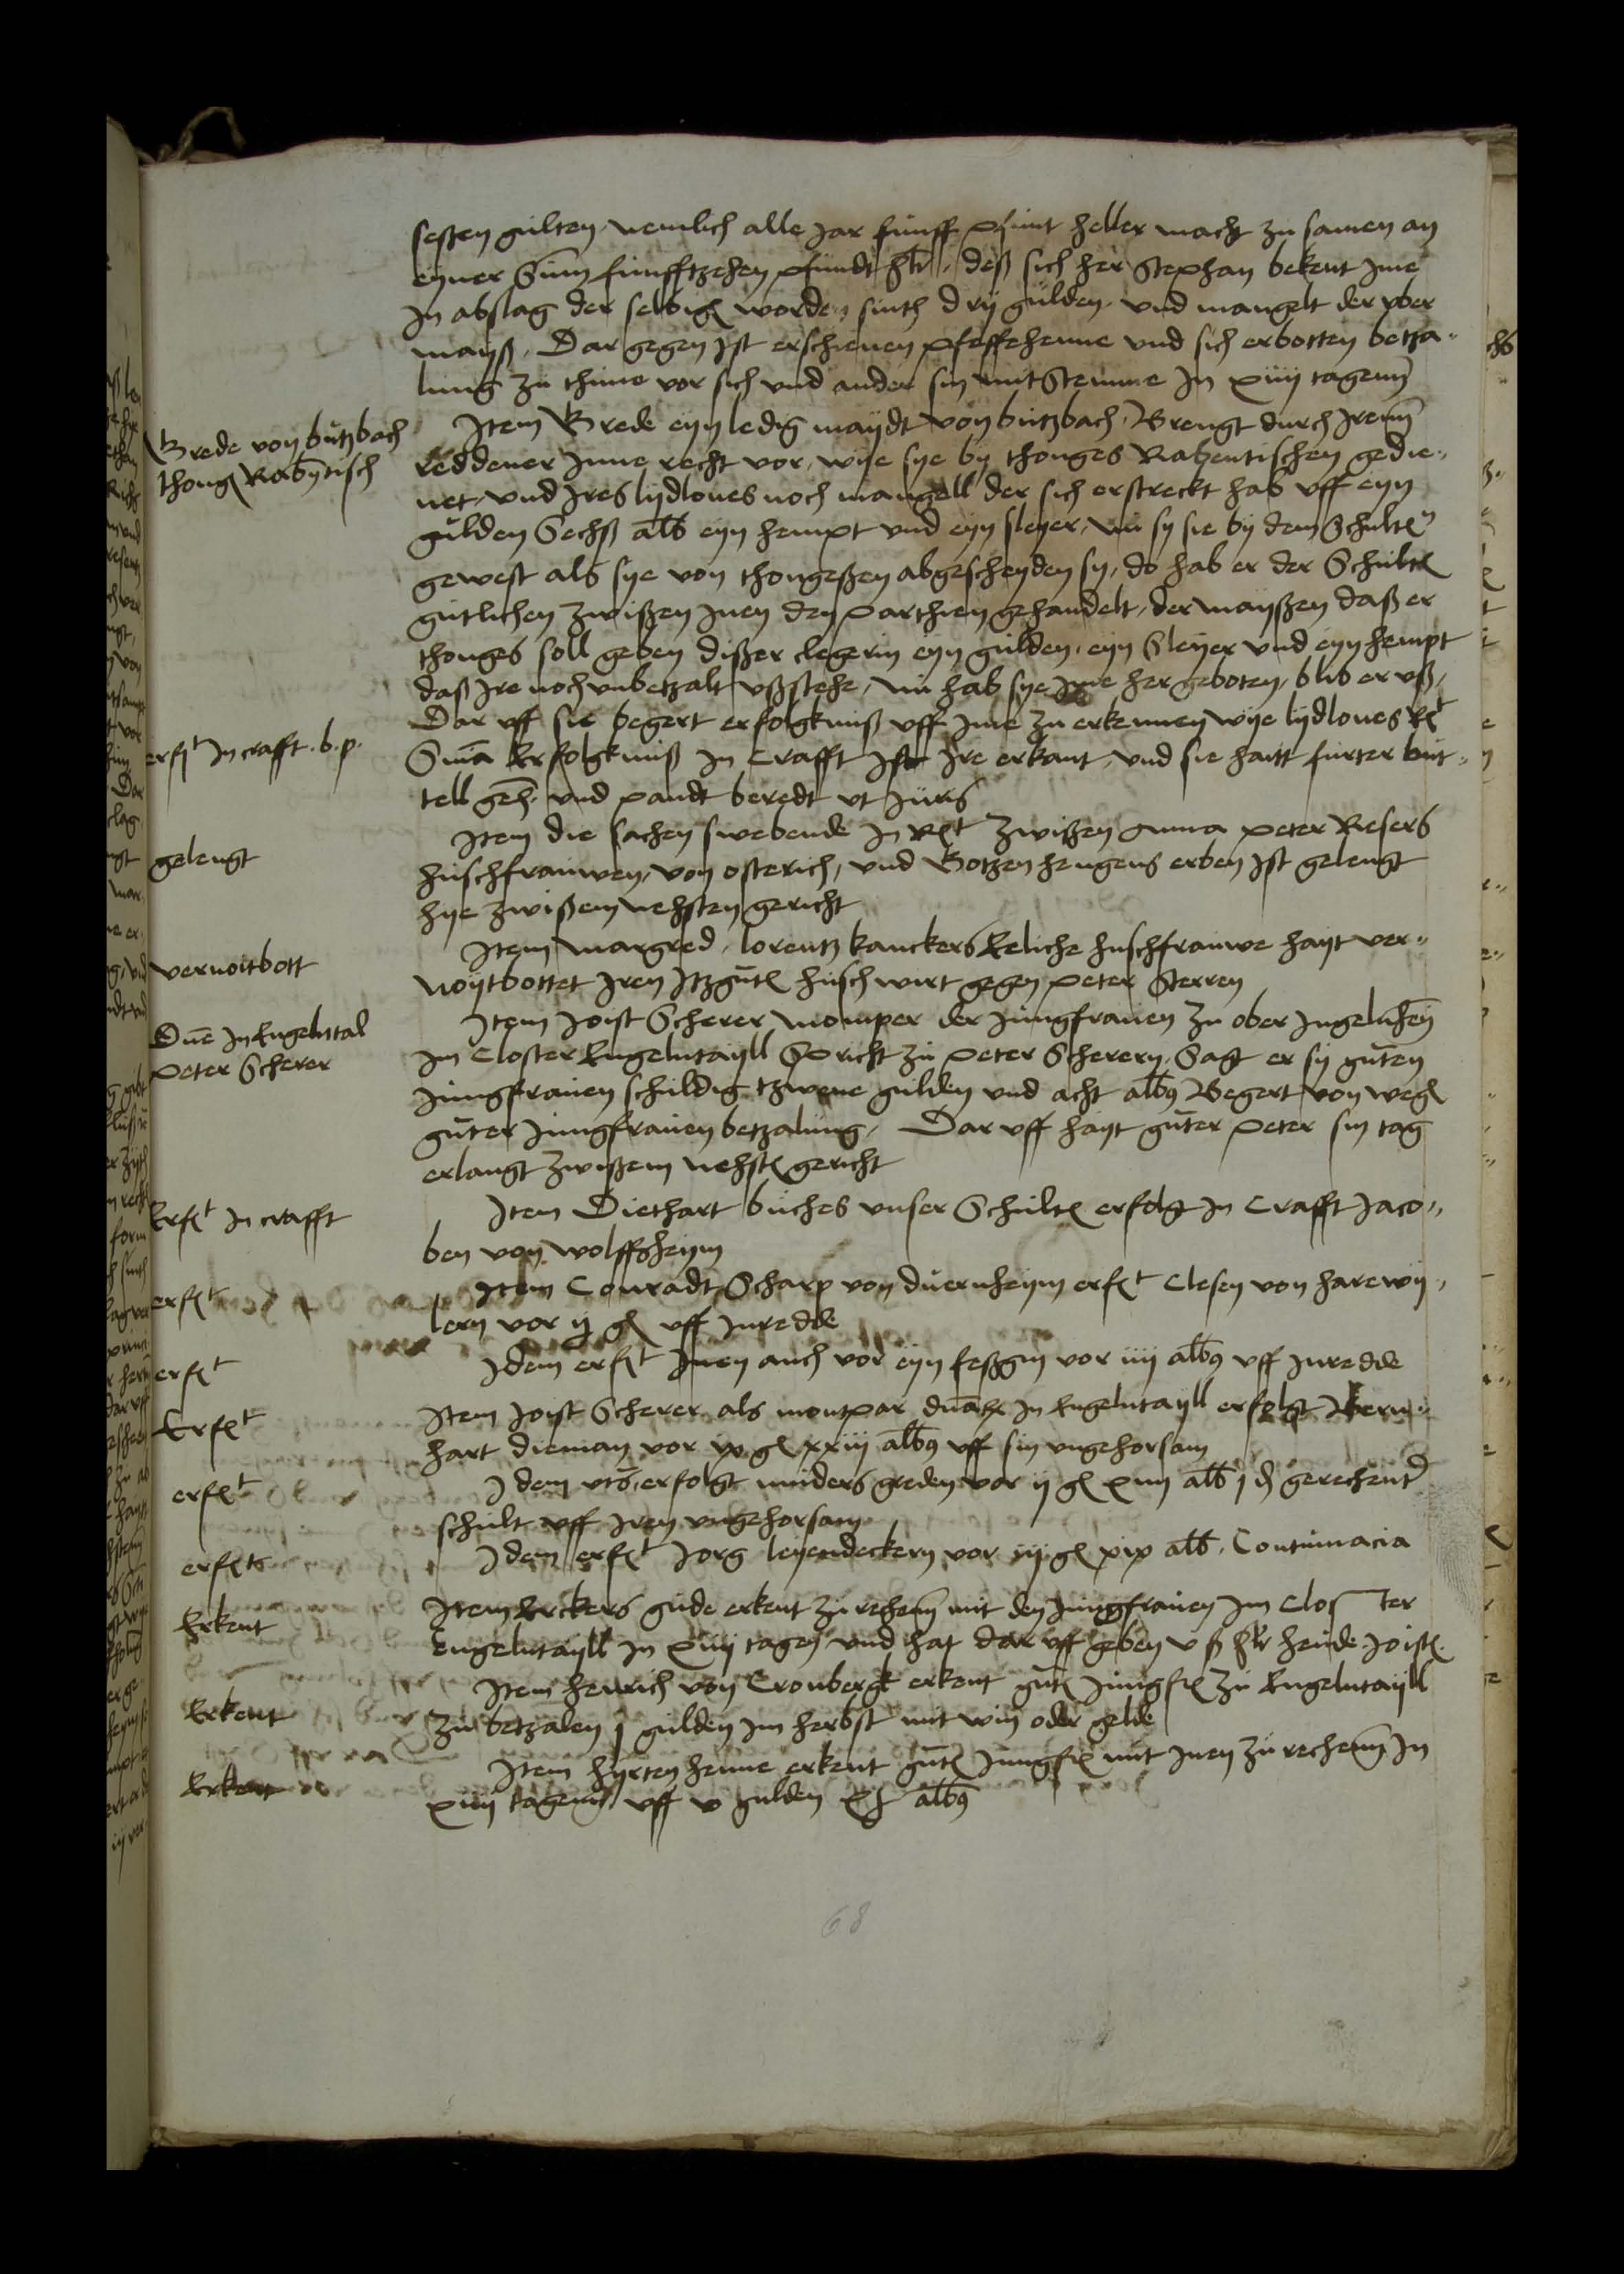 seßen gulten nemlich alle Jar funff pfunt heller macht zu samen an
eyner Sum funfftzehen pfundt hlr deß sich her Stephan bekent Jme
In abslag der selbigen worden sinth drij gulden und mangelt der uber
mayß Dar gegen Ist erschienen pfeffehenne und sich erbotten betza-
lung zu thune vor sich und ander sin mit Stemme In xiiij tagenn
Brede von butzbach
thonges Rabentisch
Item Brede eyn ledig maydt von butzbach Brengt durch Irenn
reddener Inne recht vor wije sye by thonges Rabentischen gedie-
net und Ires lijdlones noch mangell der sich erstreckt hab uff eyn
gulden Sechß alb eyn hempt und eyn sleyer nu sy sie by dem Schultes
gewest als sye von thongeßen abgescheyden sy do hab er der Schultes
gutlichen zwißen Inen den parthien gehandelt der mayßen daß er
thonges soll geben dißer clegerin eyn gulden eyn Sleyer und eyn hempt
daß Ire noch unbetzalt ußstehe nu hab sye Jme her geboten blib er uß
erft In crafft b p
Dar uff sie begert erfolgkniß uff Jme zu erkennen wije lydlones Rt
Sma Erfolgkniß In Crafft Ist Ire erkant und sie haitt furter but-
tell geh und pandt beredt ut Juris
gelengt
Item die sachen swebende In Rt zwißen Anna peter Resers
huschfrauwen von osterich und Botzen hengens erben Ist gelengt
hye zwißem nehsten gericht
vernoitbott
Item Margred lorentz kanckers Eeliche huschfrauwe hayt ver-
noytbottet Iren Itzguten huschwirt gegen peter Sterren
Dne In Engelntal
Peter Scherer
Item Joist Scherer momper der Jungfrauen zu ober Ingelnheim
Im Closter Engelntayll Spricht zu peter Scherern Sagt er sy guten
Jungfrauen schuldig tzwene gulden und acht albus Begert von wegen
guter Jungfrauen betzalung Dar uff hayt guter Peter sin tag
erlangt zwißem nehsten gericht
Erft In crafft
Item Diethart buches unser Schultes erfolgt In Crafft Jaco-
ben von wolffsheym
erft
Item Conradt Scharp von duernheym erft Clesen von harewij-
lern vor ij gl uff Inredde
erft
Idem erft Inen auch vor eyn feßgin vor iiij albus uff Inredde
Erft
Item Joist Scherer als montpar dnarum In Engelntayll erfolgt Bern-
hart dieman vor ix gl xxiij albus uff sin ungehorsam
erft
Idem uts erfolgt mulders greden vor ij gl xiiij alb j d gerechent
schult uff Iren ungehorsam
erft
Idem erft Jorg leyendeckern vor iij gl xix alb Contumacia
Erkent
Item Erckers gude erkent zu rechenn mit den Jungfrauen Im Closter
Engelntayll In xiiij tagen und hat dar uff geben v ß hlr hende Joisten
Erkent
Item henrich von Cronbergk erkent guten Jungfr zu Engelntayll
zu betzalen j gulden Im herbst mit win oder gelde
Erkent
Item hyrten henne erkent guten Jungfr mit Inen zu rechenn In
xiiij tagenn uff v gulden albus
68